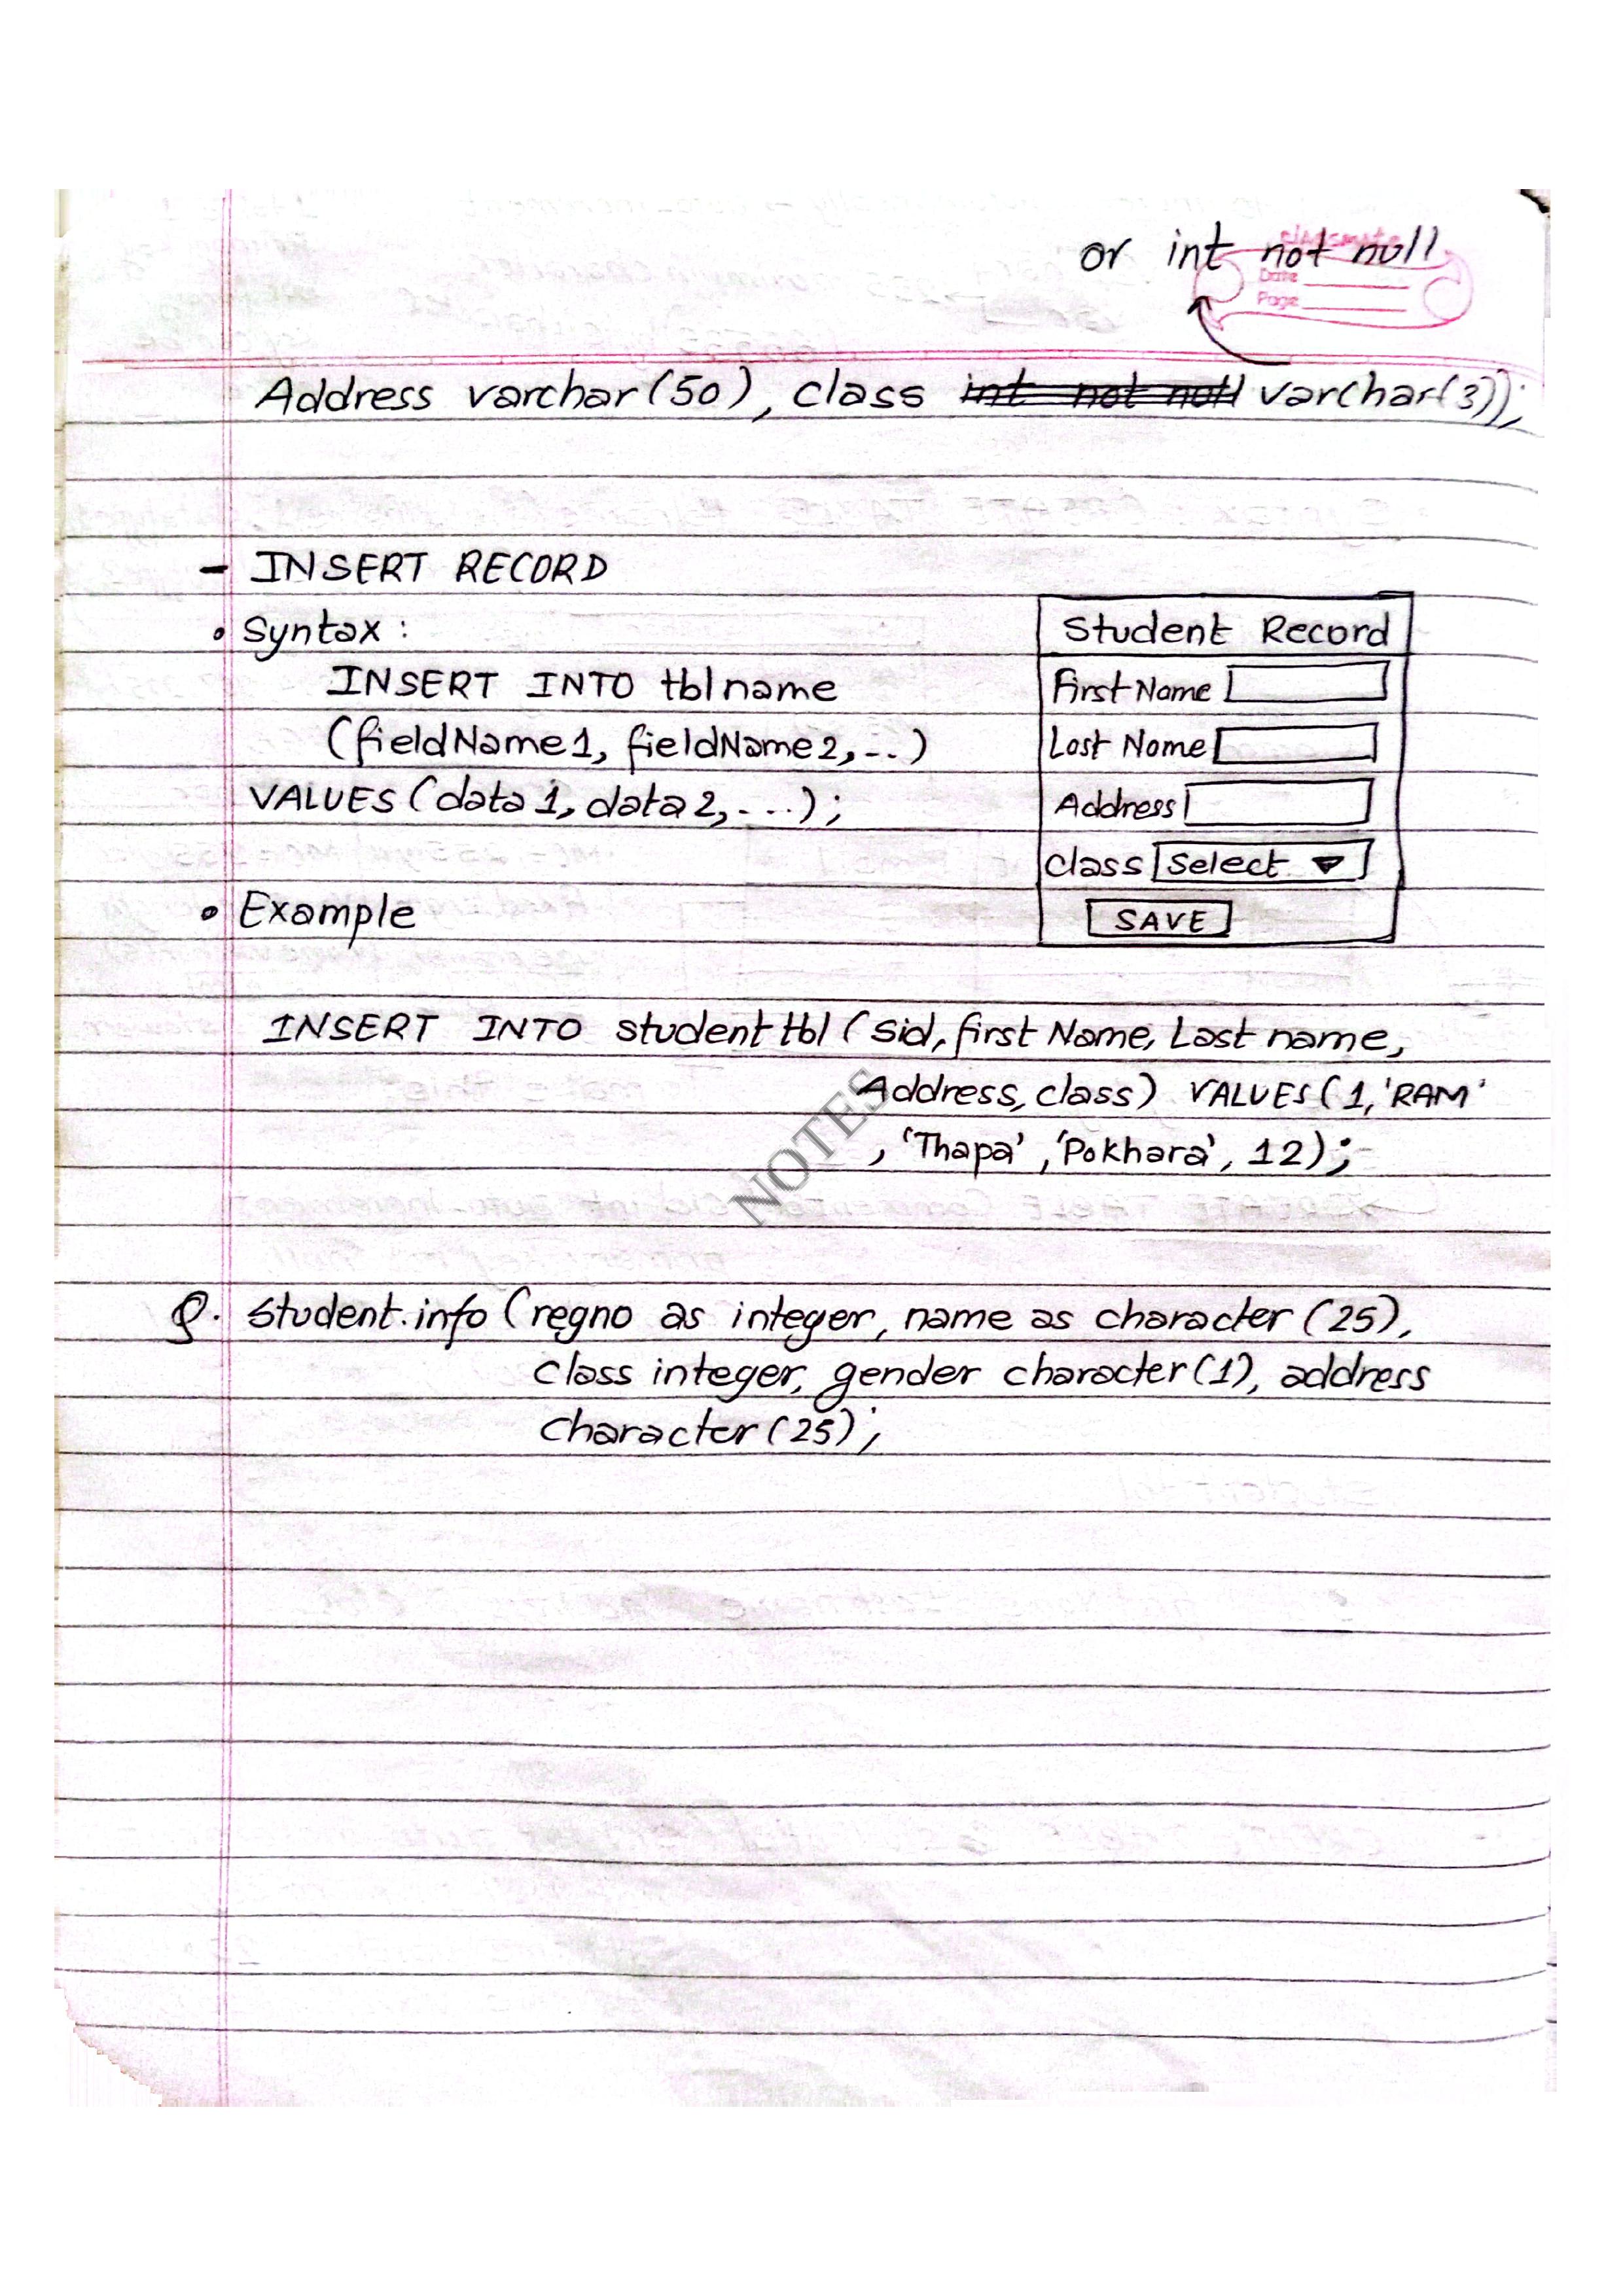 or int not null
classmate
Date
Page
Address varchar(50), class int not null varchar(3));
- INSERT RECORD
• Syntax :
INSERT INTO tblname
(fieldName1, fieldName2, ...)
VALUES (data1, data2, ...);
Student Record
First Name
Last Name
Address
Class Select ▼
SAVE
• Example
INSERT INTO studenttbl (Sid, first Name, Last name,
Address, class) VALUES (1, 'RAM'
, 'Thapa', 'Pokhara', 12);
NOTES
Q. Student.info (regno as integer, name as character (25),
class integer, gender character (1), address
character (25);